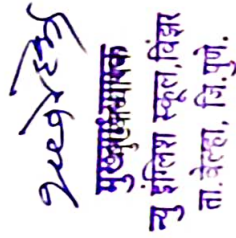 मुख्याध्यापक
न्यु इंग्लिश स्कूल, विंझर
ता.वेल्हा, जि.पुणे.